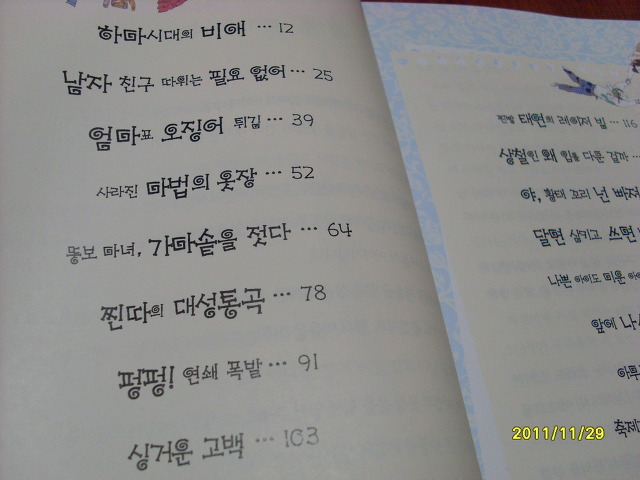 하마시대의 비애 … 12
남자 친구 따위는 필요 없어 … 25
엄마표 오징어 튀김 … 39
사라진 마법의 옷장 … 52
뚱보 마녀, 가마솥을 젓다 … 64
찐따의 대성통곡 … 78
펑펑! 연쇄 폭발 … 91
싱거운 고백 … 103
찐빵 태연의 레이저 빔 … 116
상철인 왜 입을 다문 걸까 …
야, 황태 꼬리 넌 빠져
달면 삼키고 쓰면
나쁜 아이도 미운
앞에 나
아무
축제
2011/11/29